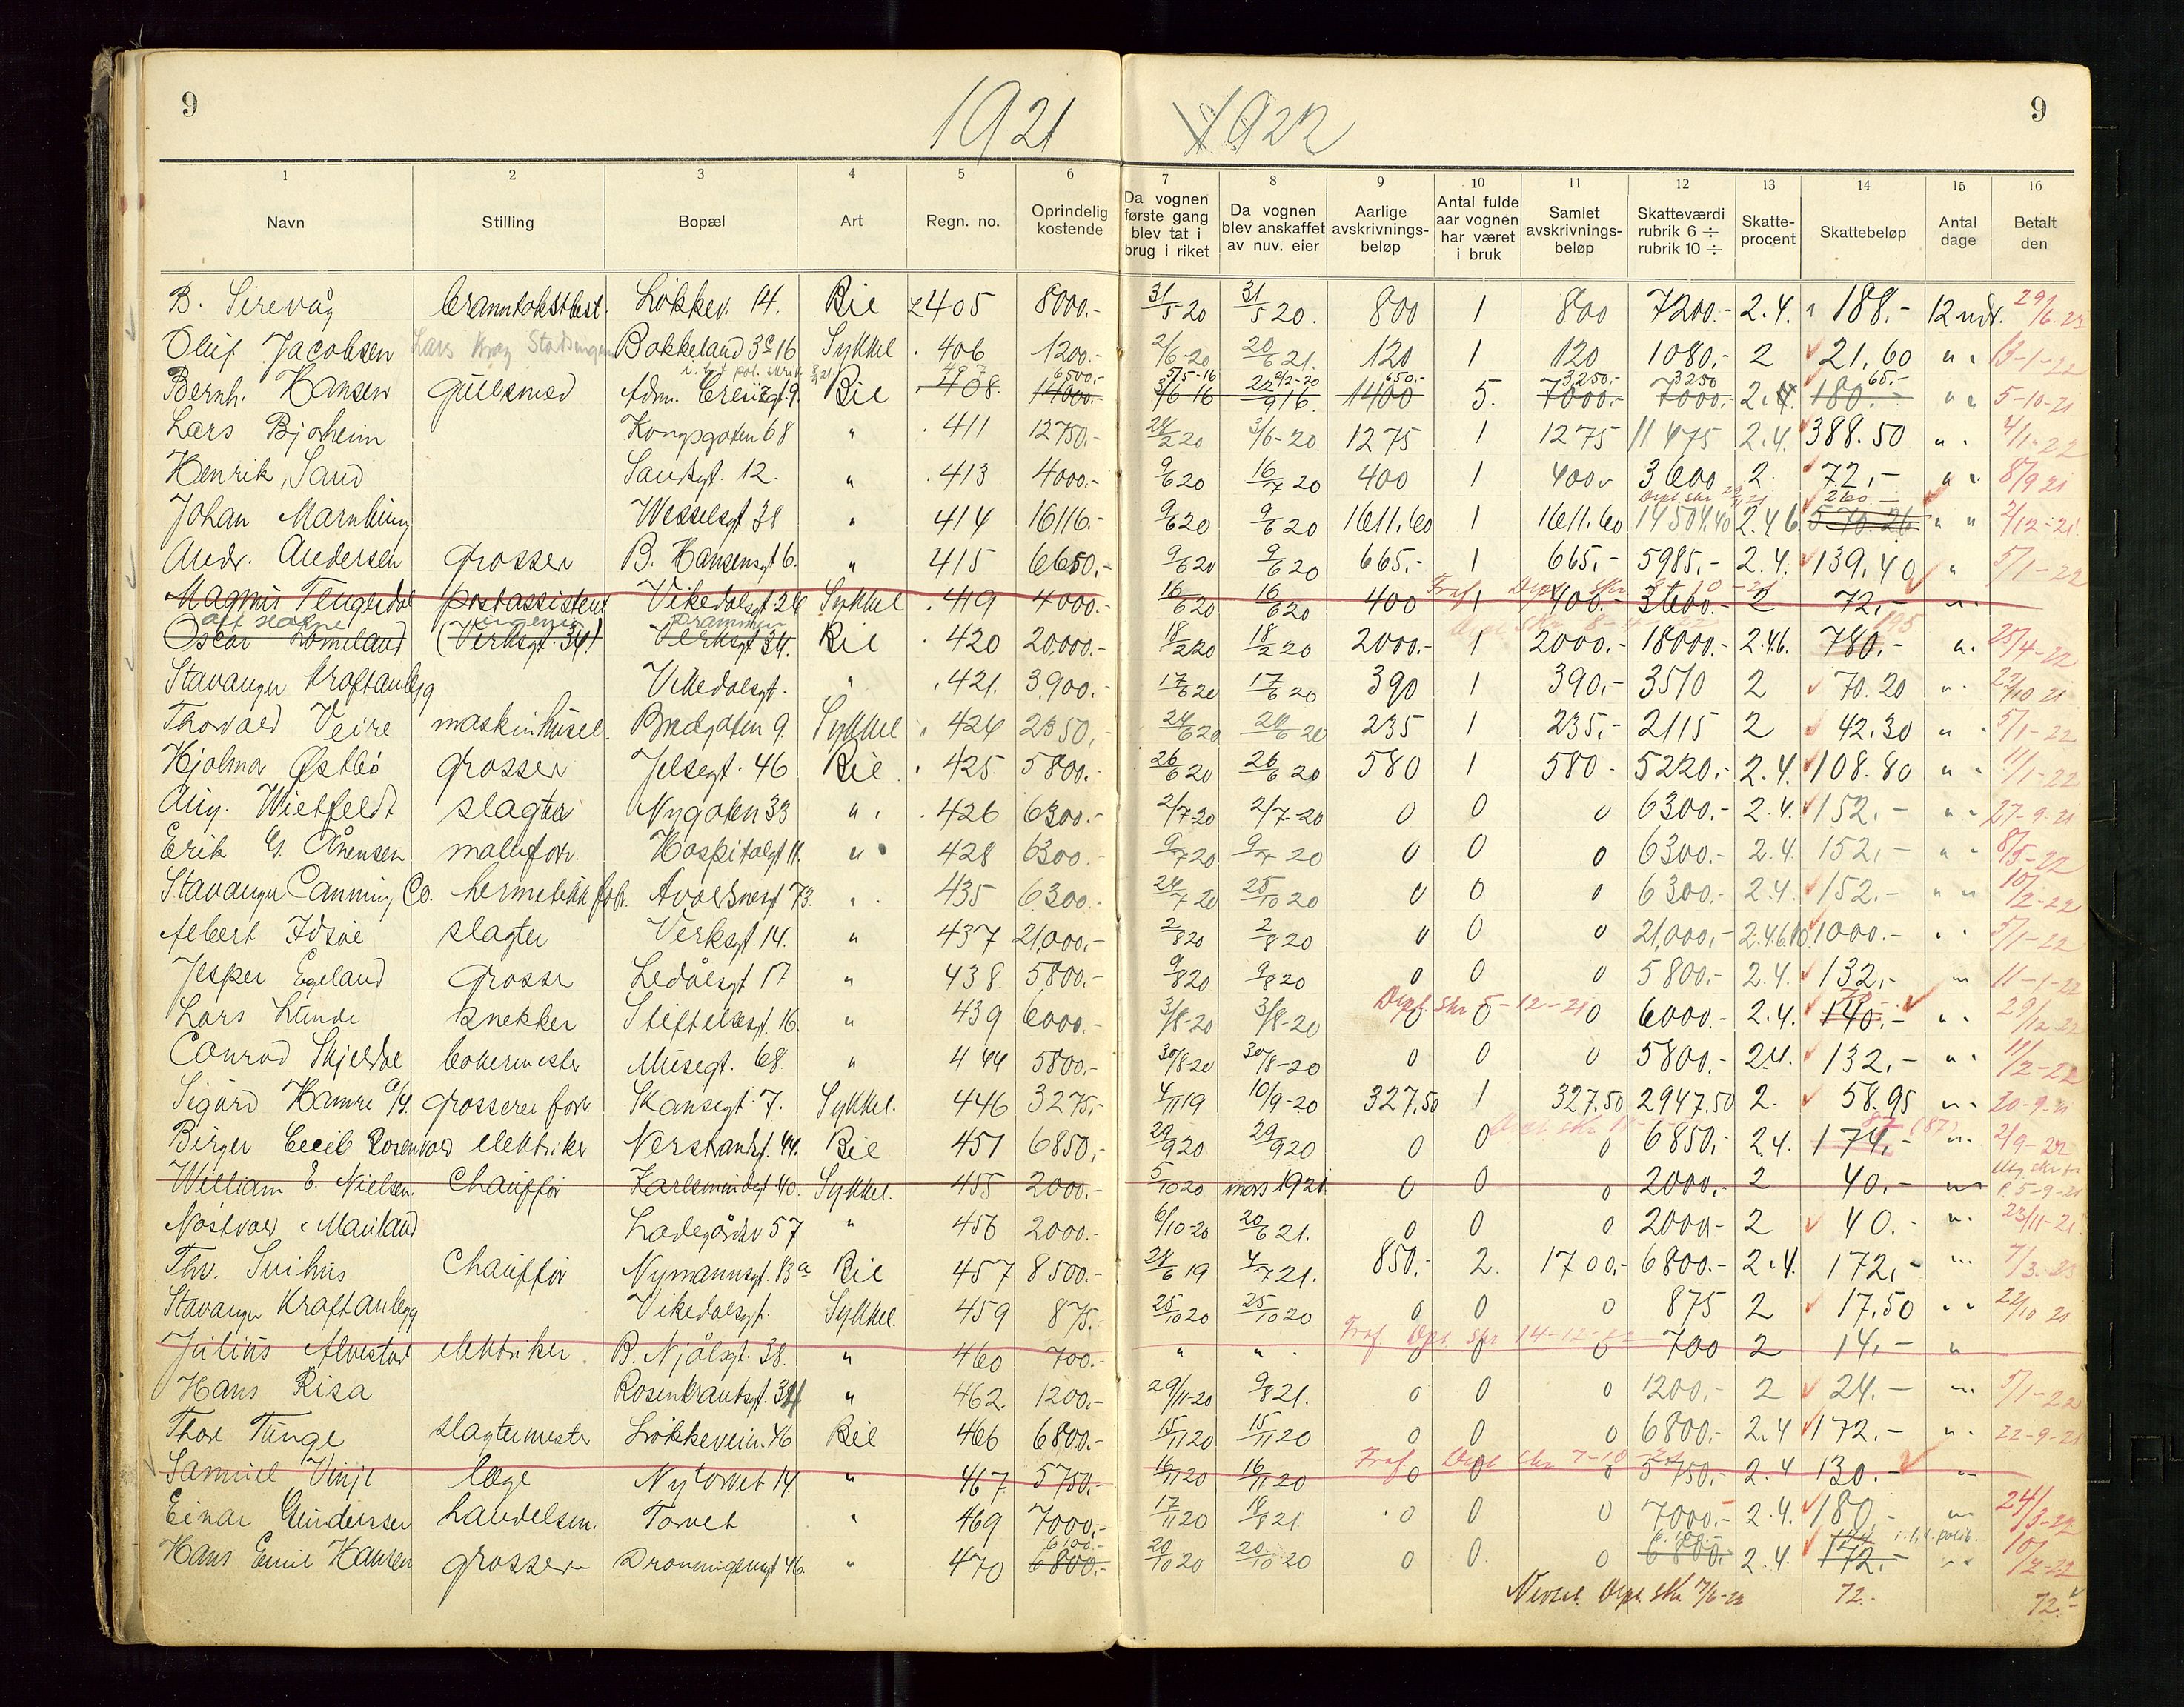 9
1921
1922
9
1 2 3 4 5 6 7 8 9 10 11 12 13 14 15 16
Navn Stilling Bopæl Art Regn. no. Oprindelig kostende Da vognen første gang blev tat i brug i riket Da vognen blev anskaffet av nuv. eier Aarlige avskrivnings-beløp Antal fulde aar vognen har været i bruk Samlet avskrivnings-beløp Skatteværdi rubrik 6 ÷ rubrik 10 ÷ Skatte-procent Skattebeløp Antal dage Betalt den
B. Sirevåg Løkkev. 14. Bil 405 8000.- 31/5 20 31/5 20. 800 1 800 7200.- 2.4. 188.- 12 mdr. 29/6.23
Oluf Jacobsen Bakkeland 3c 16 Sykkel 406 1200.- 2/6-20 20/6 21. 120 1 120 1080.- 2 21.60 " " 13-1-22
407 6500.- 5/5-16 650.- 3250,- 3250 65.-
Bernh. Hansen gullsmed Bil 408. 14000.- 3/6-16 22/9 16 1400 5. 7000.- 7000.- 2.4. 180.- " " 5-10-21
Lars Bjørheim Kongsgaten 68 " 411 12750.- 28/2 20 3/6-20 1275 1 1275 11475 2.4. 388.50 " . 4/1-22
Henrik Sand Sandsgt. 12. " 413 4000.- 9/6 20 16/7 20 400 1 400 3600 2. 72.- " " 8/9 21
260.-
Johan Marnburg Wesselsgt 38 " 414 16116.- 9/6 20 9/6 20 1611.60 1 1611.60 14504.40 2.4.6. 570.26 " " 2/12-21.
Andr. Andersen grosser B. Hansensgt 6. " 415 6650.- 9/6 20 9/6 20 665.- 1 665.- 5985.- 2.4. 139.40 " 5/1-22
Magnus Tengesdal postassistent Vikedalsgt 26 Sykkel 419 4000.- 16/6 20 16/6 20 400 1 400.- 3600.- 2 72.- "
Oscar Lomeland (Verksgt. 34) Verksgt 34. Bil 420 20,000.- 18/2 20 18/2 20 2000.- 1 2000.- 18000.- 2.4.6. 780.- ". 25/4-22
Stavanger Kraftanlegg Vikedalsgt. " 421. 3,900.- 17/6 20 17/6 20 390 1 390.- 3510 2 70.20 " 22/10 21
Thorvald Veire Bredgaten 9. Sykkel 424 2350,- 24/6 20 24/6 20 235 1 235,- 2115 2 42.30 " " 5/1-22
Hjalmar Østbö grosser Jelsegt. 46 Bil 425 5800.- 26/6 20 26/6 20 580 1 580 - 5220.- 2.4. 108.80 " " 11/1-22
Aug. Wietfeldt slagter Nygaten 33 " 426 6300.- 2/7-20 2/7-20 0 0 0 6300.- 2.4. 152.- " " 27-9-21
Erik G. Ånensen malerforr. Hospitalsgt 11. " 428 6300.- 9/7 20 9/7 20 0 0 0 6300.- 2.4. 152,- " " 8/5-22
Stavanger Canning Co. hermetikkfabr. Avaldsnesgt 73. " 435 6300.- 24/7 20 25/10 20 0 0 0 6300.- 2.4. 152.- " " 10/2-22
Albert Idsöe slagter Verksgt. 14. " 437 21,000.- 2/8 20 2/8 20 0 0 0 21,000.- 2.4.6.10 1000.- " " 5/1-22
Jesper Egeland grosser Ledålsgt 17 " 438. 5800.- 9/8 20 9/8 20 0 0 0 5800.- 2.4. 132.- " 11-1-22
Lars Lunde snekker Stiftelsesgt. 16. " 439 6000.- 3/8-20 3/8-20 0 0 0 6000.- 2.4. 140.- " . 29/12-22
Conrad Skjeldal bakermester Musegt. 68. " 444 5800.- 30/8-20 30/8-20 0 0 0 5800.- 2.4. 132,- " " 11/2-22
Sigurd Hamre A/S. grosserer forr. Skansegt 7. Sykkel. 446 3275,- 4/11 19 10/9-20 327.50 1 327.50 2947.50 2. 58.95 " " 20-9-21
Birger Cecil Rosenvold elektriker Nerstrandsgt. 44. Bil 451 6850,- 29/9 20 29/9 20 0 0 0 6850,- 2.4. 174.- " 2/9-22
William E. Nielsen. Chauffør Karlsmindegt 40. Sykkel. 455 2000.- 5/10 20 mars 1921. 0 0 0 2000.- 2 40.- " 5-9-21
Nöstvold & Mauland Ladegårdsv 57 " 456 2000.- 6/10-20 20/6 21. 0 0 0 2000,- 2 40.- " 23/11-21.
Thv. Svihus Chauffør Nymannsgt. 13a Bil 457 8500.- 28/6 19 4/7 21. 850.- 2. 1700.- 6800.- 2.4. 172,- " 7/3-23
Stavanger Kraftanlegg Vikedalsgt. Sykkel. 459 875.- 25/10 20 25/10 20 0 0 0 875 2 17.50 " " 22/10 21
Julius Alvestad elektriker. B. Njålsgt. 38. " 460 700.- " " 0 0 0 700 2 14,- "
Hans Risa Rosenkrantsgt. " 462. 1200.- 29/11-20 9/8 21. 0 0 0 1200,- 2 24.- " 5/1-22
Thore Tunge slagtermester Løkkevein. 46 Bil 466 6800.- 15/11 20 15/11 20 0 0 0 6800.- 2.4 172.- " " 22-9-21
Samuel Vinje læge Nytorvet 14. " 467 5750.- 16/11 20 16/11 20 0 0 0 5750.- 2.4 130.- "
Einar Gundersen handelsm. Torvet " 469 7000.- 17/11 20 18/8 21 0 0 0 7000.- 2.4. 180.- " 24/3-22
6100.- 6.100.-
Hans Emil Hansen grosser Dronningensgt 46 " 470 6800.- 20/10 20 20/10 20 0 0 0 6800.- 2.4. 172.- " " 10/2-22
72.- 72.-